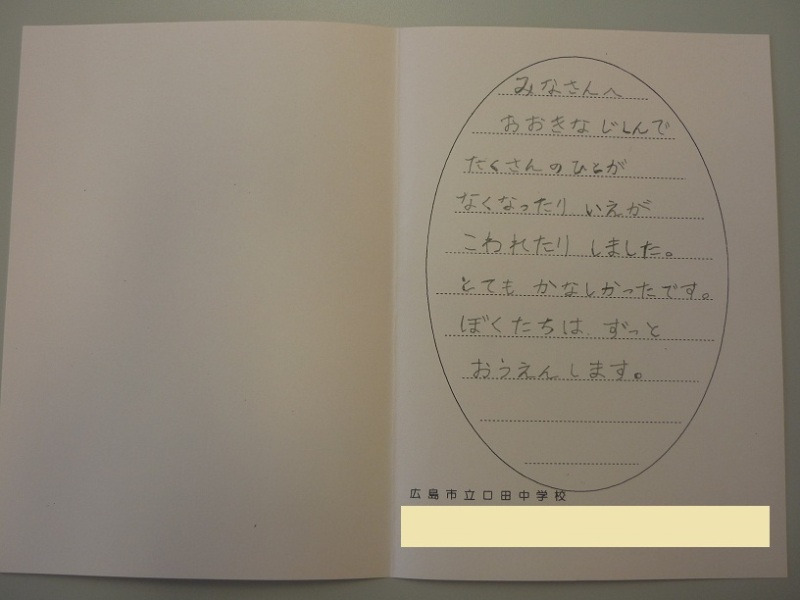 みなさんへ
おおきな じしんで
たくさんのひとが
なくなったり いえが
こわれたり しました。
とても かなしかったです。
ぼくたちは ずっと
おうえんします。
広島市立口田中学校